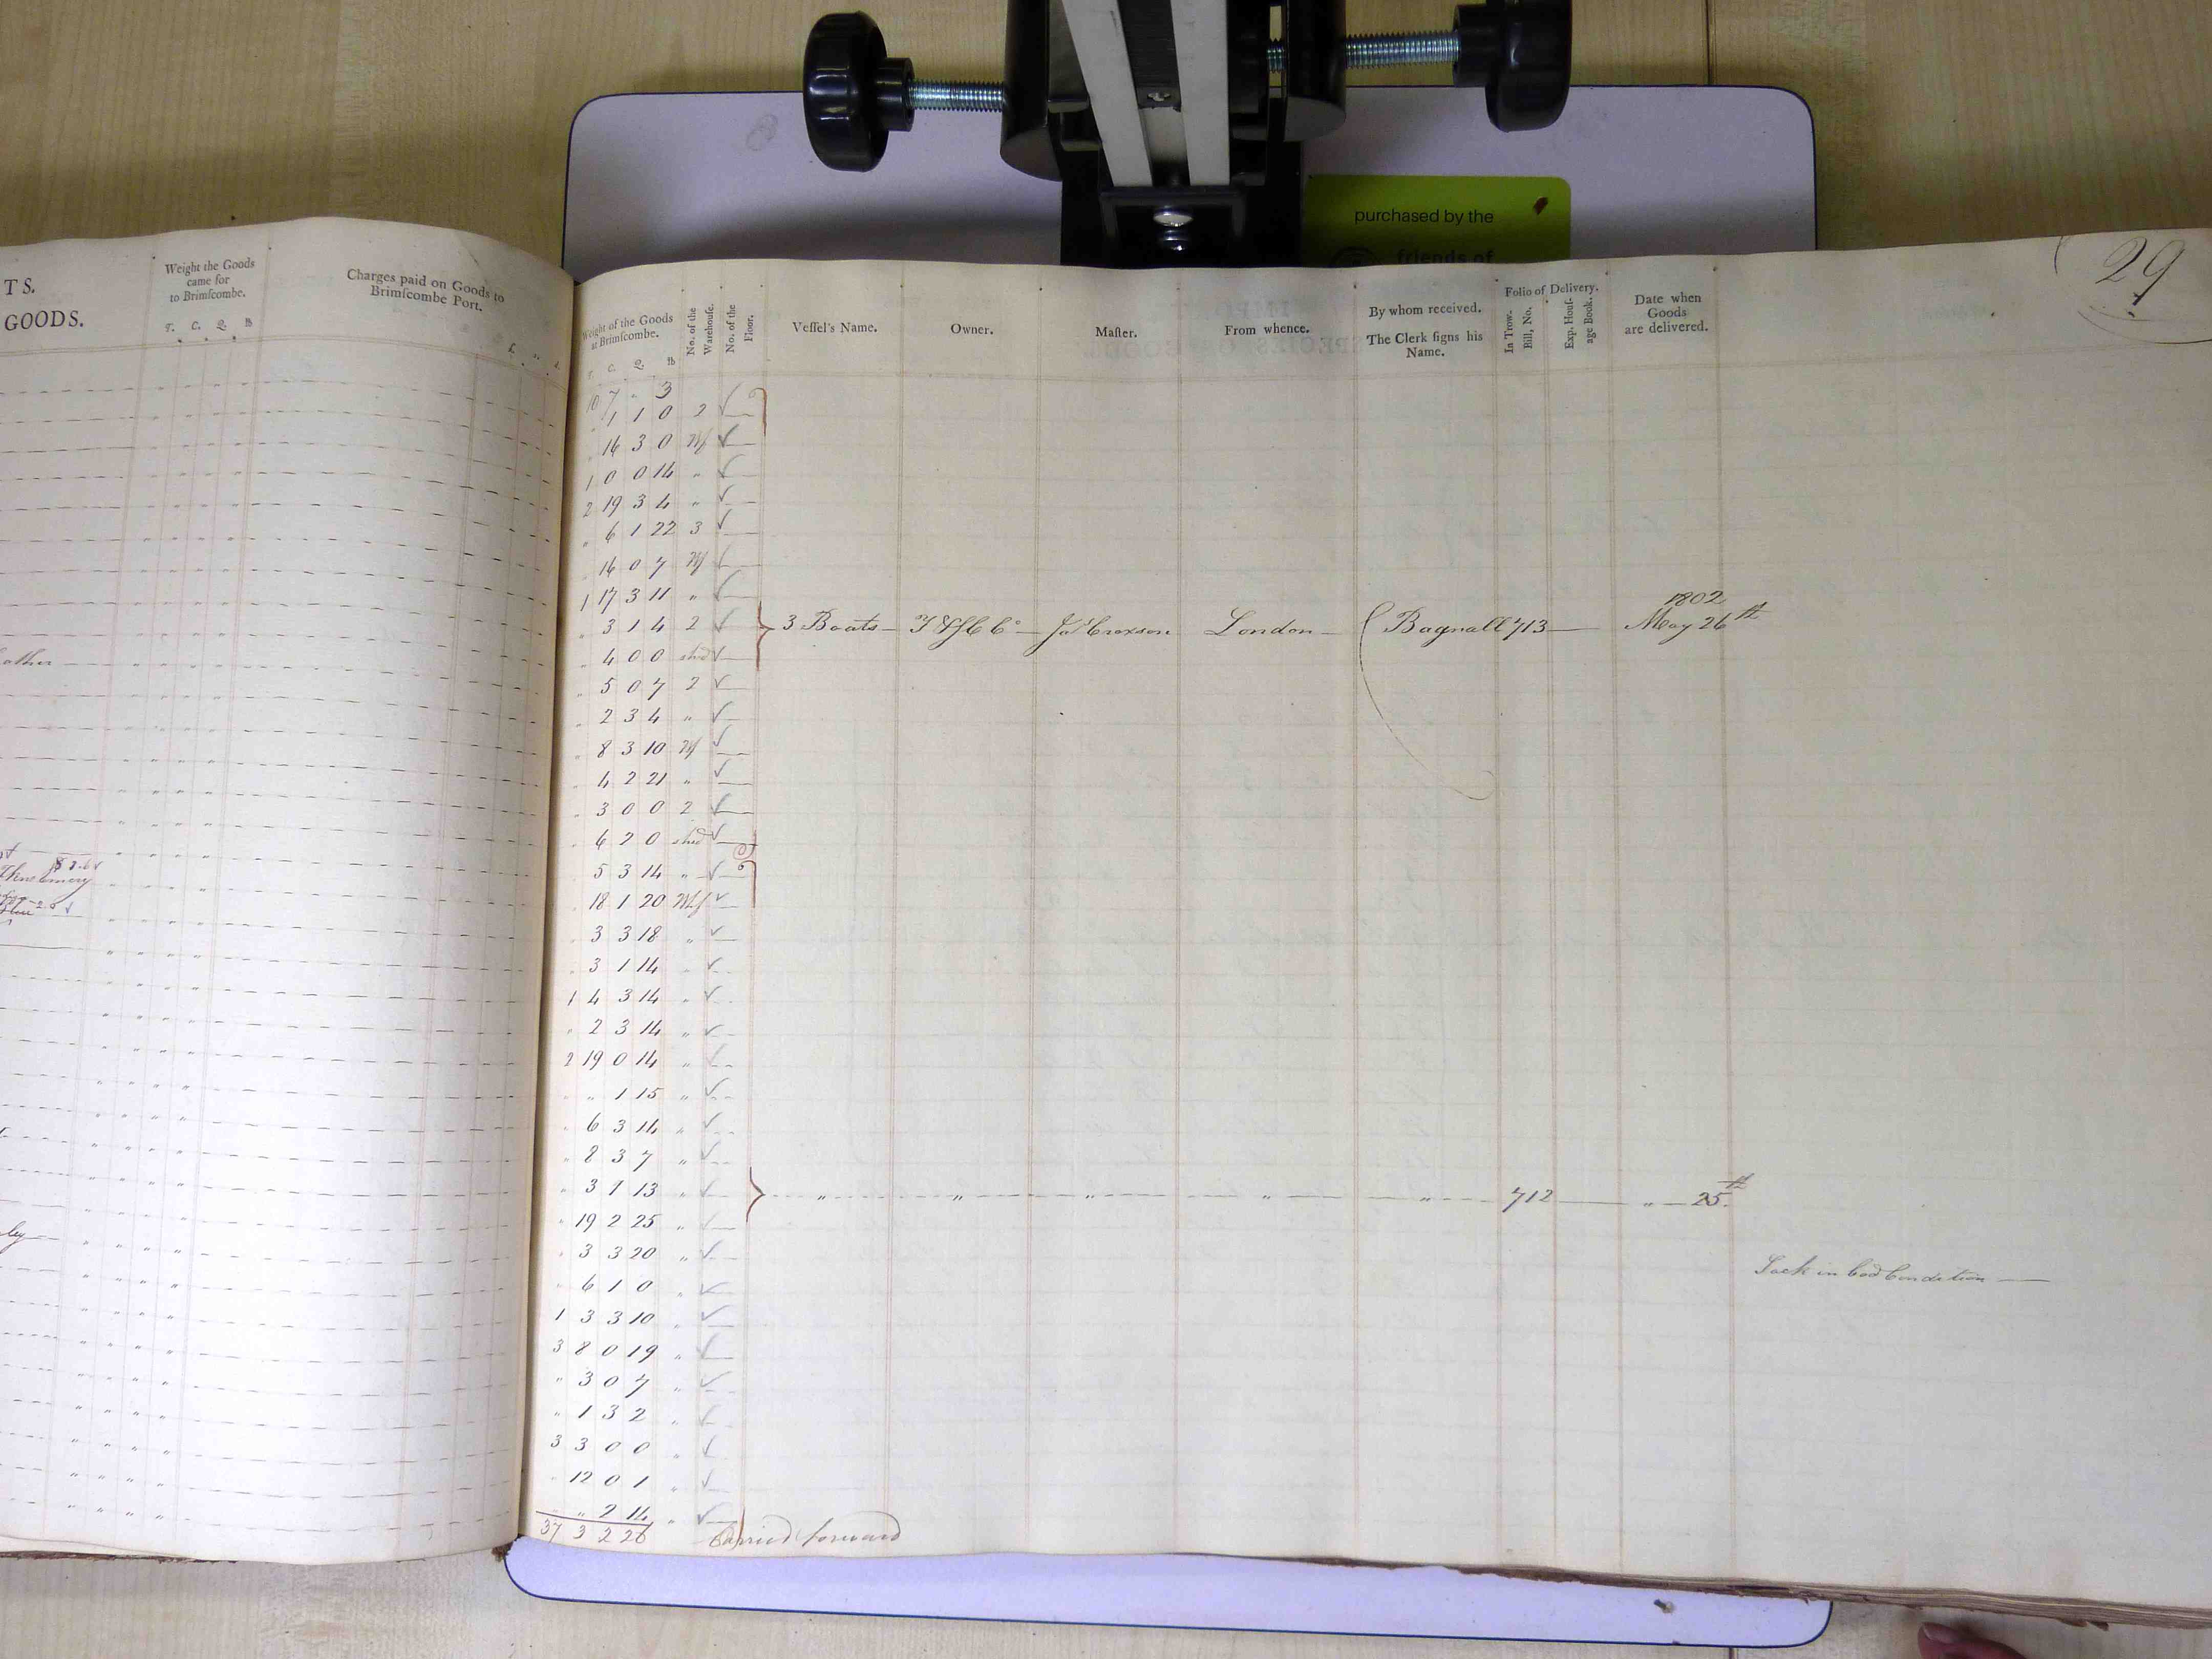 purchased by the
friends of
TS.
GOODS.
Weight the Goods
came for
to Brimſcombe.
T. C. Q. lb
Charges paid on Goods to
Brimſcombe Port.
29
Weight of the Goods
at Brimſcombe.
T. C. Q. lb
No. of the
Warehouse.
No. of the
Floor.
Veſſel's Name.
Owner.
Maſter.
From whence.
By whom received.
The Clerk ſigns his
Name.
Folio of Delivery.
In Trow-
Bill, No.
Exp. Houſ-
age Book.
Date when
Goods
are delivered.
10 7 " 3
" 1 1 0 2 ✓
" 16 3 0 Wf ✓
1 0 0 14 " ✓
2 19 3 4 " ✓
" 6 1 22 3 ✓
" 16 0 7 Wf ✓
1 17 3 11 " ✓
" 3 1 4 2 ✓ 3 Boats London Bagnall 713 1802 May 26th
" 4 0 0 shed ✓
" 5 0 7 2 ✓
" 2 3 4 " ✓
" 8 3 10 Wf ✓
" 4 2 21 " ✓
" 3 0 0 2 ✓
" 6 2 0 shed ✓
" 5 3 14 " ✓
" 18 1 20 Whf ✓
" 3 3 18 " ✓
" 3 1 14 " ✓
1 4 3 14 " ✓
" 2 3 14 " ✓
2 19 0 14 " ✓
" " 1 15 " ✓
" 6 3 14 " ✓
" 8 3 7 " ✓
" 3 1 13 " ✓ " " " " " 712 " 25th
" 19 2 25 " ✓
" 3 3 20 " ✓
Sack in bad Condition
" 6 1 0 " ✓
1 3 3 10 " ✓
3 8 0 19 " ✓
" 3 0 7 " ✓
" 1 3 2 " ✓
3 3 0 0 " ✓
" 12 0 1 " ✓
" " 2 14 " ✓
37 3 2 26 Carried forward